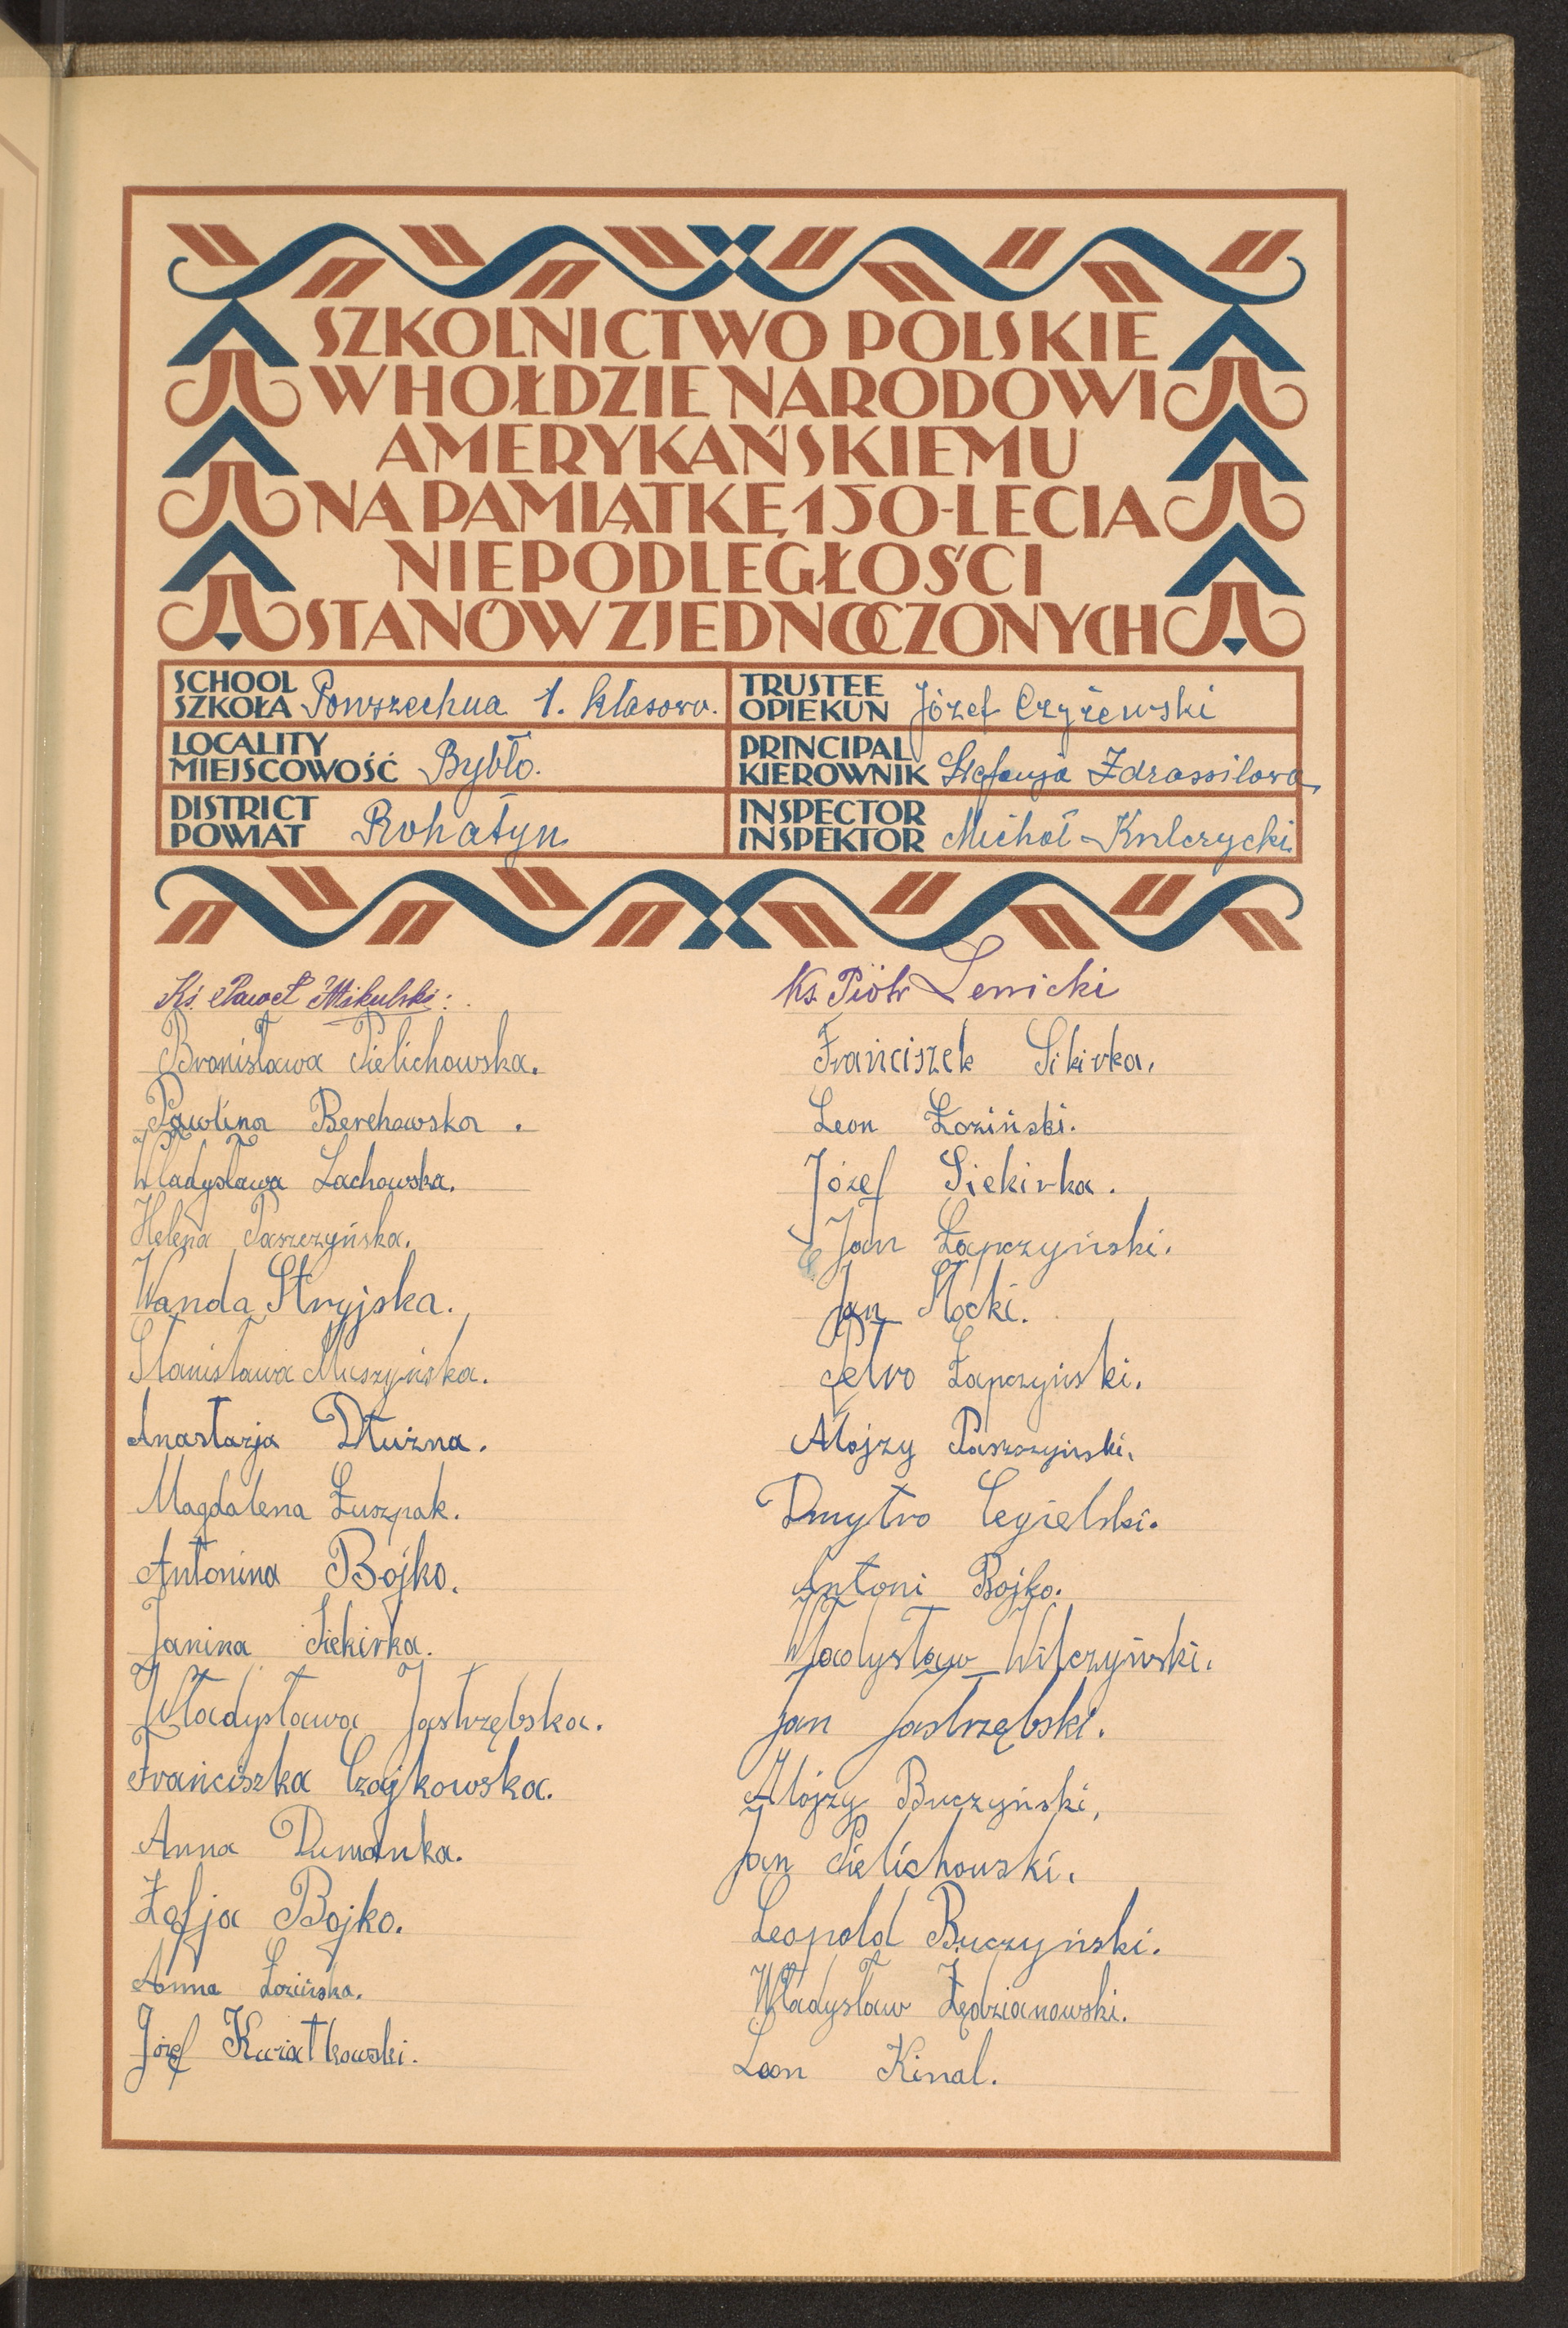 SZKOLNICTWO POLSKIE
W HOŁDZIE NARODOWI
AMERYKAŃSKIEMU
NA PAMIĄTKĘ 150-LECIA
NIEPODLEGŁOŚCI
STANÓW ZJEDNOCZONYCH
SCHOOL
SZKOŁA Powszechna 1. klasowa.
TRUSTEE
OPIEKUN Józef Czyżewski
LOCALITY
MIEJSCOWOŚĆ Bybło.
PRINCIPAL
KIEROWNIK Stefanja Zdrassilowa
DISTRICT
POWIAT Rohatyn
INSPECTOR
INSPEKTOR Michał Kulczycki
Ks. Paweł Mikulski:
Bronisława Pielichowska.
Pawlina Berehowska.
Władysława Lachowska.
Helena Paszczyńska.
Wanda Stryjska.
Stanisława Muszyńska.
Anastazja Dłużna.
Magdalena Łuszpak.
Antonina Bojko.
Janina Siekirka.
Władysława Jastrzębska.
Franciszka Czajkowska.
Anna Dumanka.
Zofja Bojko.
Anna Łozińska.
Józef Kwiatkowski.
Ks. Piotr Lewicki
Franciszek Sikirka.
Leon Łoziński.
Józef Siekirka.
Jan Łapczyński.
Jan Mocki.
Petro Łapczyński.
Alojzy Paszczyński.
Dmytro Cegielski.
Antoni Bojko.
Władysław Wilczyński.
Jan Jastrzębski.
Alojzy Buczyński,
Jan Pielichowski.
Leopold Buczyński.
Władysław Zędzianowski.
Leon Kinal.